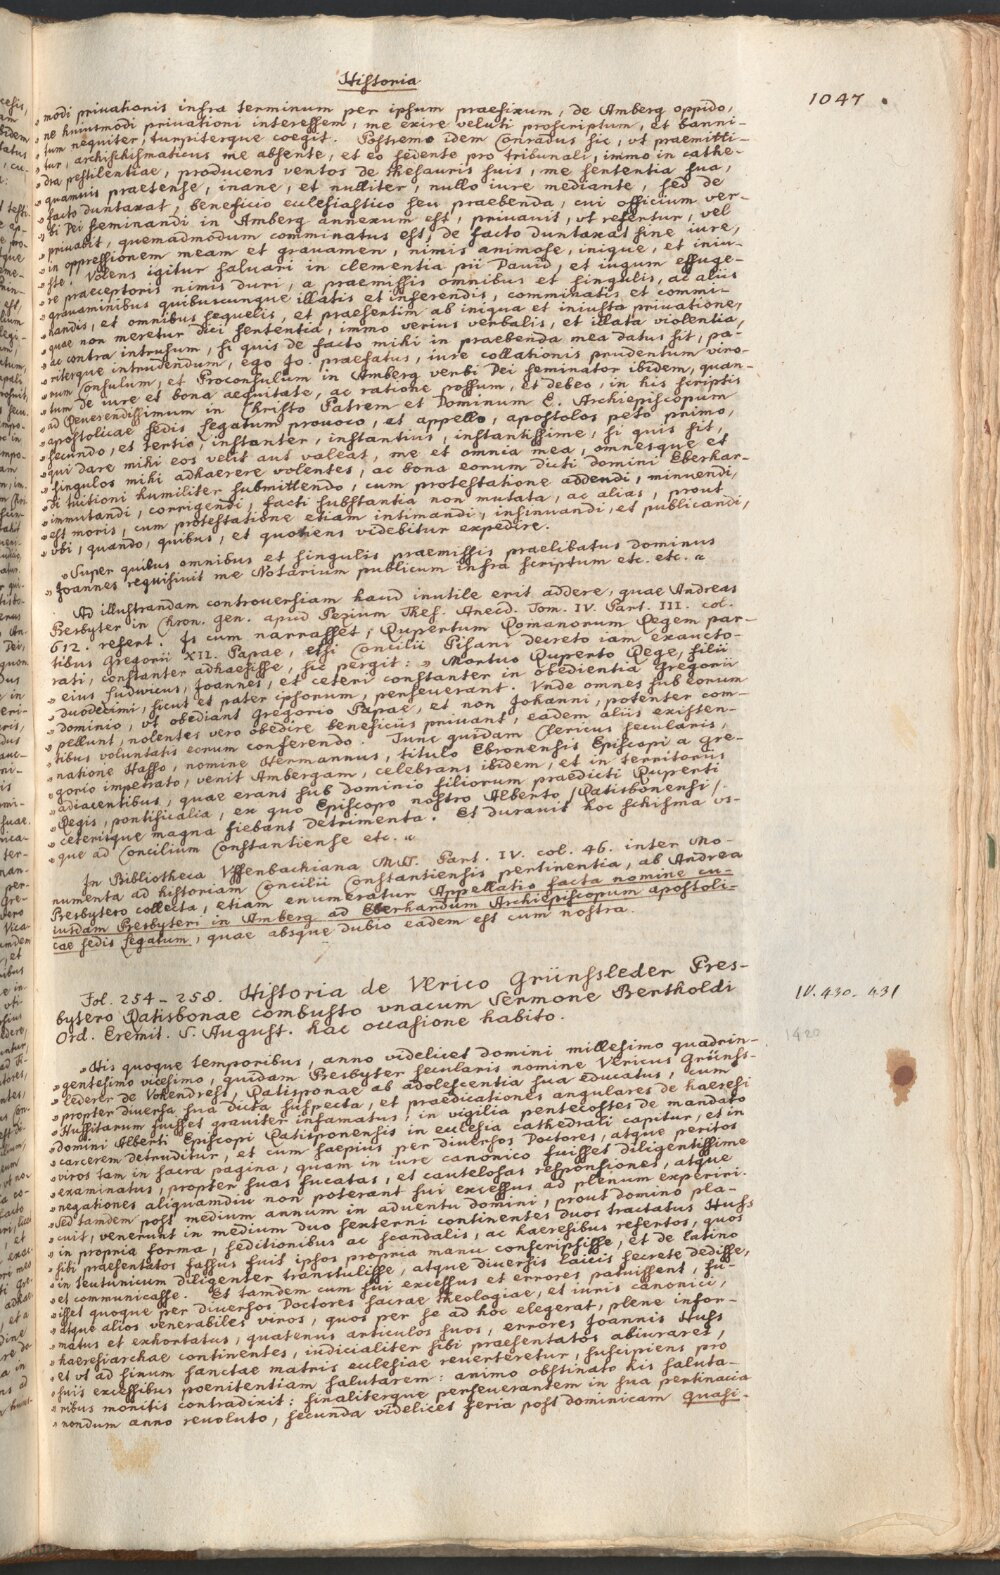 Historia
1047.
„modi privationis infra terminum per ipsum praefixum, de Amberg oppido,
„ne huiusmodi privationi interessem, me exire veluti proscriptum, et banni-
„tum nequiter, turpiterque coegit. Postremo idem Conradus sic, ut praemitti-
„tur, archischismaticus me absente, et eo sedente pro tribunali, immo in cathe-
„dra pestilentiae, producens ventos de thesauris suis, me sententia sua,
„quamvis praetense, inane, et nulliter, nullo iure mediante, sed de
„facto duntaxat, beneficio ecclesiastico seu praebenda, cui officium ver-
„bi Dei seminandi in Amberg annexum est, privavit, vt refertur, vel
„privabit, quemadmodum comminatus est, de facto duntaxat sine iure,
„in oppressionem meam et gravamen, nimis animose, inique, et iniu-
„ste. Volens igitur salvari in clementia pii David, et iugum effuge-
„re praeceptoris nimis duri, a praemissis omnibus et singulis, ac aliis
„gravaminibus quibuscunque illatis et inferendis, comminatis et commi-
„nandis, et omnibus sequelis, et praesertim ab iniqua et iniusta privatione,
„quae non meretur dici sententia, immo verius verbalis, et illata violentia,
„ac contra intrusum, si quis de facto mihi in praebenda mea datus sit, pa-
„riterque intrudendum, ego Jo. praefatus, iure collationis prudentum viro-
„rum Consulum, et Proconsulum in Amberg verbi Dei seminator ibidem, quan-
„tum de iure et bona aequitate, ac ratione possum, et debeo, in his scriptis
„ad Reverendissimum in Christo Patrem et Dominum E. Archiepiscopum
„apostolicae sedis Legatum provoco, et appello, apostolos peto primo,
„secundo, et tertio, instanter, instantius, instantissime, si quis sit,
„qui dare mihi eos velit aut valeat, me et omnia mea, omnesque et
„singulos mihi adhaerere volentes, ac bona eorum dicti domini Eberhar-
„di tuitioni humiliter submittendo, cum protestatione addendi, minuendi,
„immutandi, corrigendi, facti substantia non mutata, ac alias, prout
„est moris, cum protestatione etiam intimandi, insinuandi, et publicandi,
„vbi, quando, quibus, et quotiens videbitur expedire.
„Super quibus omnibus et singulis praemissis praelibatus dominus
„Joannes requisivit me Notarium publicum infra scriptum etc. etc. “
Ad illustrandam controversiam haud inutile erit addere, quae Andreas
Presbyter in Chron. gen. apud Pezium Thes. Anecd. Tom. IV. Part. III. col.
612. refert. Is cum narrasset, Rupertum Romanorum Regem par-
tibus Gregorii XII. Papae, etsi Concilii Pisani decreto iam exaucto-
rati, constanter adhaesisse, sic pergit: „Mortuo Ruperto Rege, filii
„eius Ludwicus, Joannes, et ceteri constanter in obedientia Gregorii
„duodecimi, sicut et pater ipsorum, perseverant. Vnde omnes sub eorum
„dominio, vt obediant Gregorio Papae, et non Johanni, potenter com-
„pellunt, nolentes vero obedire beneficiis privant, eadem aliis existen-
„tibus voluntatis eorum conferendo. Tunc quidam Clericus secularis,
„natione Hasso, nomine Hermannus, titulo Ebronensis Episcopi a Gre-
„gorio impetrato, venit Ambergam, celebrans ibidem, et in territoriis
„adiacentibus, quae erant sub dominio filiorum praedicti Ruperti
„Regis, pontificalia, ex quo Episcopo nostro Alberto /Ratisbonensi/.
„ceterisque magna fiebant detrimenta. Et duravit hoc schisma vs-
„que ad Concilium Constantiense etc. “
In Bibliotheca Vffenbachiana MS. Part. IV. col. 46. inter Mo-
numenta ad historiam Concilii Constantiensis pertinentia, ab Andrea
Presbytero collecta, etiam enumeratur Appellatio facta nomine cu-
iusdam Presbyteri in Amberg ad Eberhardum Archiepiscopum apostoli-
cae sedis Legatum, quae absque dubio eadem est cum nostra.
Fol. 254-258. Historia de Vlrico Grünssleder Pres-
bytero Ratisbonae combusto vnacum Sermone Bertholdi
Ord. Eremit. S. August. hac occasione habito.
IV. 430. 431
1420
„His quoque temporibus, anno videlicet domini millesimo quadrin-
„gentesimo vicesimo, quidam Presbyter secularis nomine Vlricus Grünss-
„lederer de Vohendress, Ratisponae ab adolescentia sua educatus, cum
„propter diversa sua dicta suspecta, et praedicationes angulares de haeresi
„Hussitarum fuisset graviter infamatus, in vigilia pentecostes de mandato
„domini Alberti Episcopi Ratisponensis in ecclesia cathedrali capitur, et in
„carcerem detruditur, et cum saepius per diversos Doctores, atque peritos
„viros tam in sacra pagina, quam in iure canonico fuisset diligentissime
„examinatus, propter suas fucatas, et cautelosas responsiones, atque
„negationes aliquamdiu non poterant sui excessus ad plenum experiri.
„Sed tamdem post medium annum in adventu domini, prout domino pla-
„cuit, venerunt in medium duo sexterni continentes duos tractatus Huss
„in propria forma, seditionibus ac scandalis, ac haeresibus refertos, quos
„sibi praesentatos fassus fuit ipsos propria manu conscripsisse, et de latino
„in teutunicum diligenter transtulisse, atque diversis laicis secrete dedisse,
„et communicasse. Et tamdem cum sui excessus et errores patuissent, fu-
„isset quoque per diversos Doctores sacrae theologiae, et iuris canonici,
„atque alios venerabiles viros, quos per se ad hoc elegerat, plene infor-
„matus et exhortatus, quatenus articulos suos, errores Joannis Huss
„haeresiarchae continentes, iudicialiter sibi praesentatos abiuraret,
„et vt ad sinum sanctae matris ecclesiae reverteretur, suscipiens pro
„suis excessibus poenitentiam salutarem: animo obstinato his saluta-
„ribus monitis contradixit: finaliterque perseverantem in sua pertinacia
„nondum anno revoluto, secunda videlicet feria post dominicam quasi-